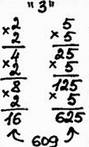 "3"
2
× 2
4
× 2
8
× 2
16
5
× 5
25
× 5
125
× 5
625
609